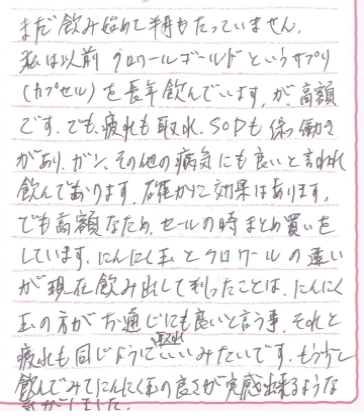 まだ飲み始めて半月もたっていません。
私は以前クロワールゴールドというサプリ
(カプセル)を長年飲んでいますが、高額
です。でも、疲れも取れ、SODも 働き
があり、ガン、その他の病気にも良いと言われ
飲んでおります。確かに効果はあります。
でも高額なため、セールの時まとめ買いを
しています。にんにく玉とクロワールの違い
が現在飲み出して判ったことは、にんにく
玉の方がお通じにも良いと言う事、それと
疲れも同じように取れいいみたいです。もう少し
飲んでみてにんにく玉の良さが実感出来るような
気がしました。